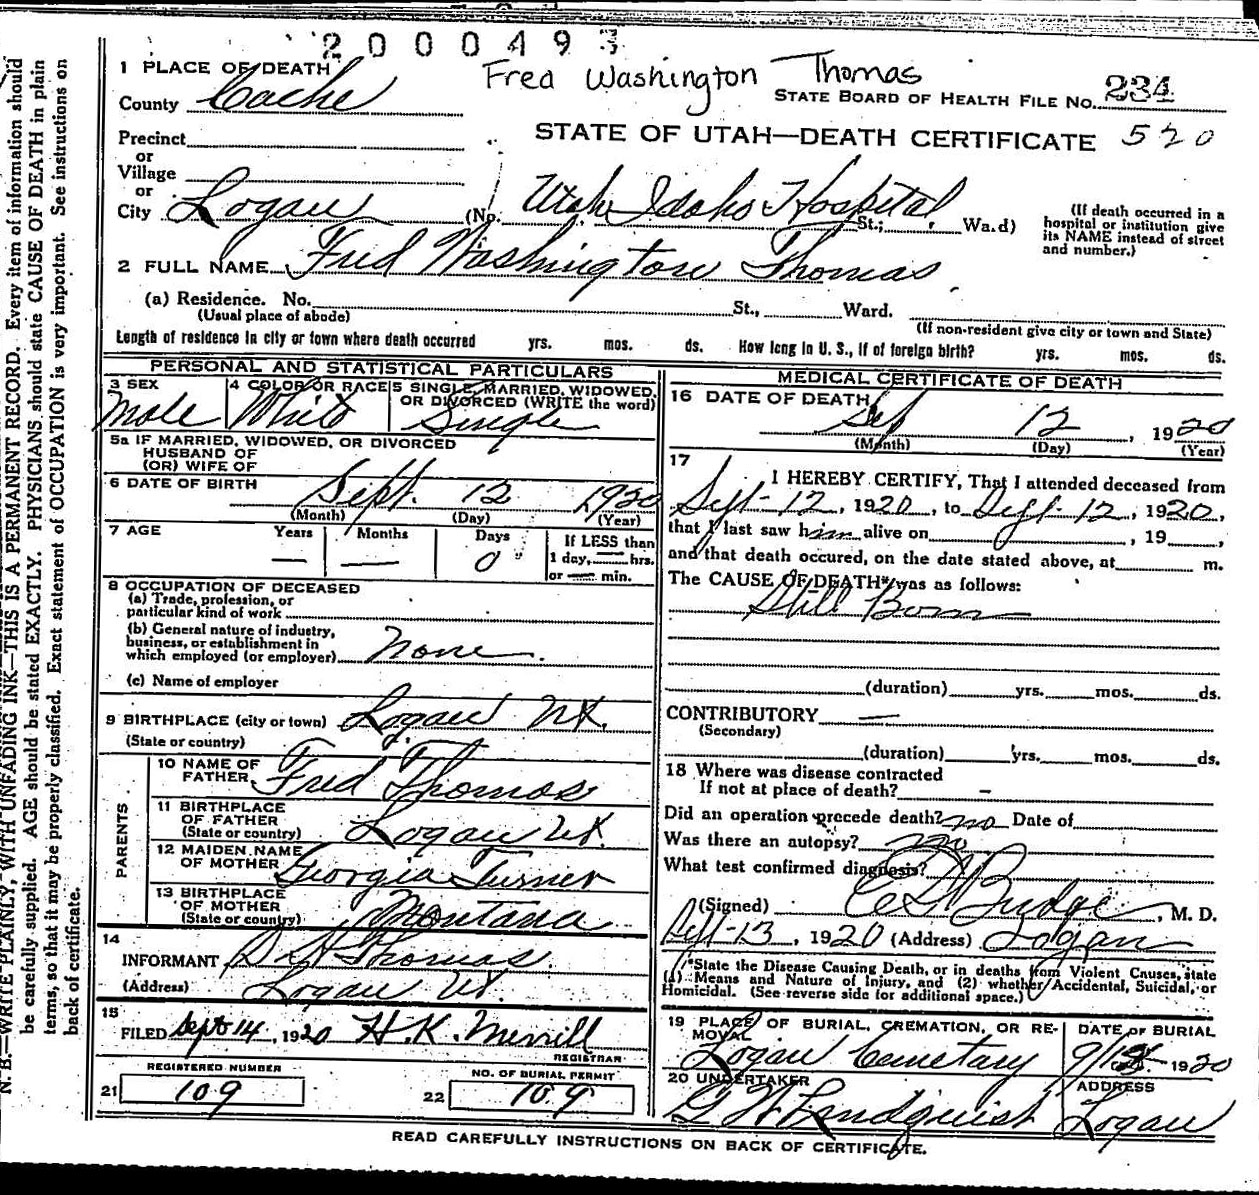 2000493
Fred Washington Thomas
1 PLACE OF DEATH
County Cache
STATE BOARD OF HEALTH FILE No. 234
STATE OF UTAH—DEATH CERTIFICATE 520
Precinct
or
Village
or
City Logan (No. Utah Idaho Hospital St.; Ward)
(If death occurred in a
hospital or institution give
its NAME instead of street
and number.)
2 FULL NAME Fred Washington Thomas
(a) Residence. No. St., Ward.
(Usual place of abode) (If non-resident give city or town and State)
Length of residence in city or town where death occurred yrs. mos. ds. How long in U. S., if of foreign birth? yrs. mos. ds.
PERSONAL AND STATISTICAL PARTICULARS
3 SEX 4 COLOR OR RACE 5 SINGLE, MARRIED, WIDOWED,
OR DIVORCED (WRITE the word)
Male White Single
5a IF MARRIED, WIDOWED, OR DIVORCED
HUSBAND OF
(OR) WIFE OF
6 DATE OF BIRTH Sept. 12 1920
(Month) (Day) (Year)
7 AGE Years Months Days If LESS than
— — 0 1 day, — hrs.
or — min.
8 OCCUPATION OF DECEASED
(a) Trade, profession, or
particular kind of work
(b) General nature of industry,
business, or establishment in
which employed (or employer) None.
(c) Name of employer
9 BIRTHPLACE (city or town) Logan Ut.
(State or country)
PARENTS
10 NAME OF
FATHER Fred Thomas
11 BIRTHPLACE
OF FATHER
(State or country) Logan Ut.
12 MAIDEN NAME
OF MOTHER Georgia Turner
13 BIRTHPLACE
OF MOTHER
(State or country) Montana
14
INFORMANT Thomas
(Address) Logan Ut.
15
FILED Sept 14, 1920 H. K. Merrill
REGISTRAR
REGISTERED NUMBER NO. OF BURIAL PERMIT
21 109 22 109
MEDICAL CERTIFICATE OF DEATH
16 DATE OF DEATH
Sep 12, 1920
(Month) (Day) (Year)
17
I HEREBY CERTIFY, That I attended deceased from
Sept-12, 1920, to Sept-12, 1920,
that I last saw him alive on , 19 ,
and that death occured, on the date stated above, at m.
The CAUSE OF DEATH* was as follows:
Still Born
(duration) yrs. mos. ds.
CONTRIBUTORY —
(Secondary)
(duration) yrs. mos. ds.
18 Where was disease contracted
If not at place of death? –
Did an operation precede death? no Date of
Was there an autopsy? no
What test confirmed diagnosis?
(Signed) Budge, M. D.
Sept-13, 1920 (Address) Logan
*State the Disease Causing Death, or in deaths from Violent Causes, state
(1) Means and Nature of Injury, and (2) whether Accidental, Suicidal, or
Homicidal. (See reverse side for additional space.)
19 PLACE OF BURIAL, CREMATION, OR RE-
MOVAL DATE OF BURIAL
Logan Cemetary 1920
20 UNDERTAKER ADDRESS
G W Lindquist Logan
READ CAREFULLY INSTRUCTIONS ON BACK OF CERTIFICATE.
N. B.—WRITE PLAINLY, WITH UNFADING INK—THIS IS A PERMANENT RECORD. Every item of information should
be carefully supplied. AGE should be stated EXACTLY. PHYSICIANS should state CAUSE OF DEATH in plain
terms, so that it may be properly classified. Exact statement of OCCUPATION is very important. See instructions on
back of certificate.